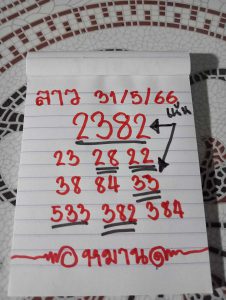 ลาว 31/5/66
เน้น
2382
23 28 22
38 84 33
533 382 384
หมาน